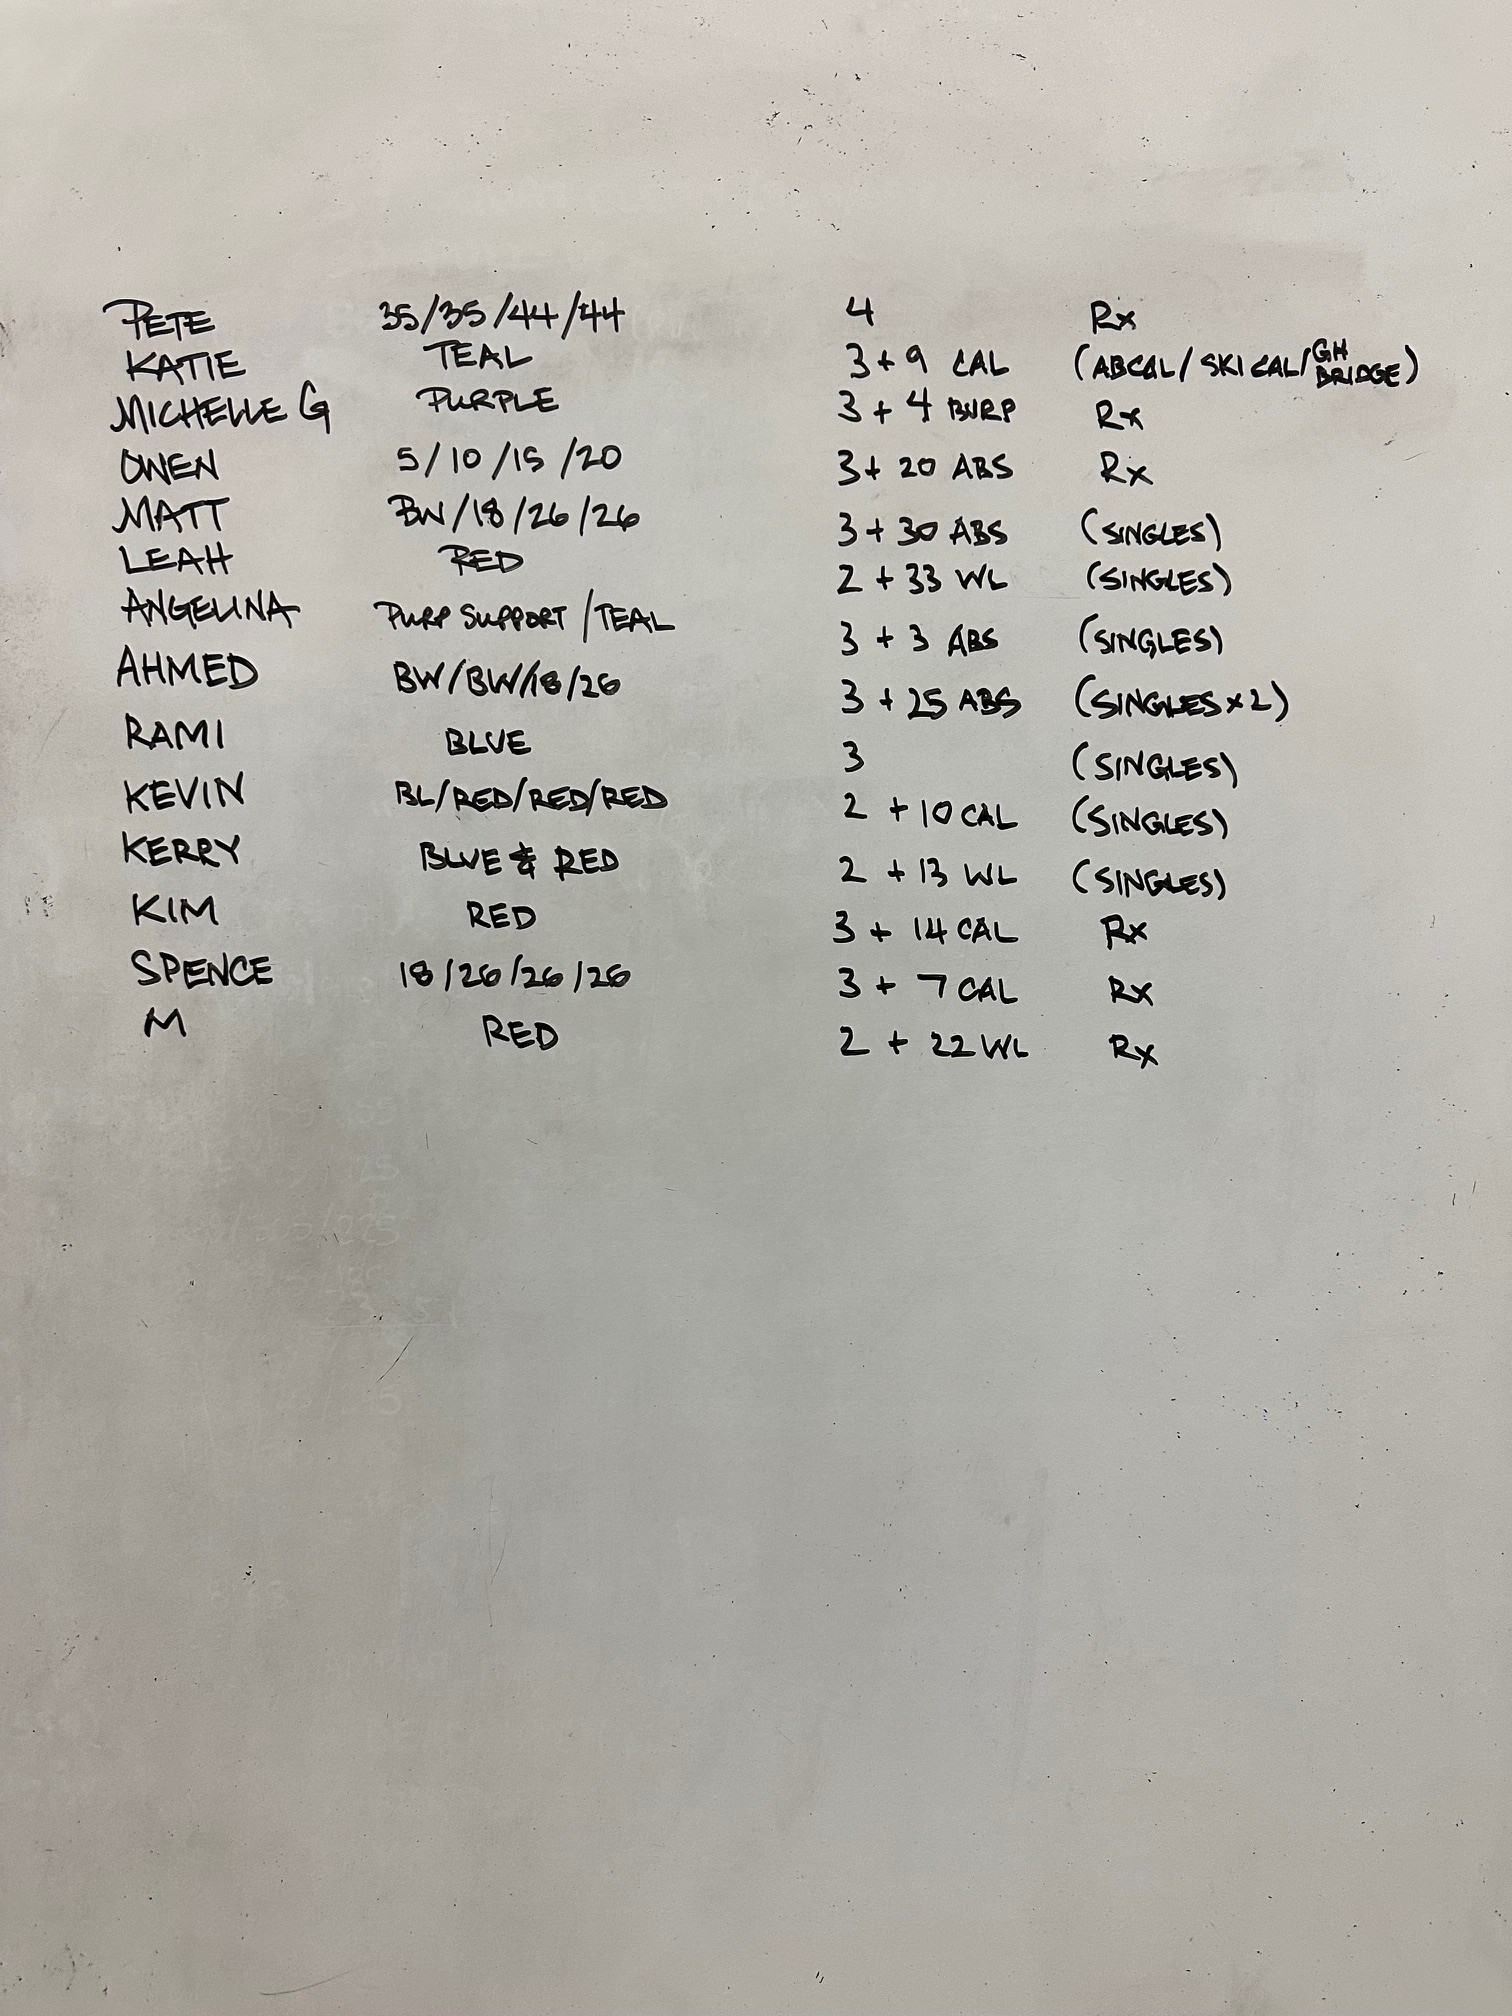 PETE 35/35/44/44 4 Rx
KATIE TEAL 3+9 CAL (ABCAL/SKI CAL/GH BRIDGE)
MICHELLE G PURPLE 3+4 BURP Rx
OWEN 5/10/15/20 3+20 ABS Rx
MATT BW/18/26/26 3+30 ABS (SINGLES)
LEAH RED 2+33 WL (SINGLES)
ANGELINA PURP SUPPORT/TEAL 3+3 ABS (SINGLES)
AHMED BW/BW/18/26 3+25 ABS (SINGLES x2)
RAMI BLUE 3 (SINGLES)
KEVIN BL/RED/RED/RED 2+10 CAL (SINGLES)
KERRY BLUE & RED 2+13 WL (SINGLES)
KIM RED 3+14 CAL Rx
SPENCE 18/26/26/26 3+7 CAL Rx
M RED 2+22 WL Rx